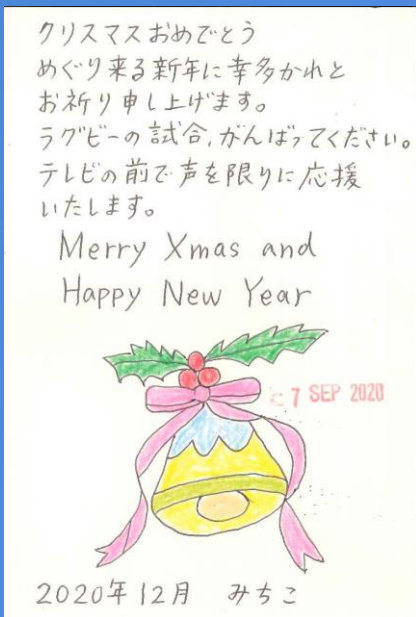 クリスマスおめでとう
めぐり来る新年に幸多かれと
お祈り申し上げます。
ラグビーの試合,がんばってください。
テレビの前で声を限りに応援
いたします。
Merry Xmas and
Happy New Year
7 SEP 2020
2020年12月 みちこ